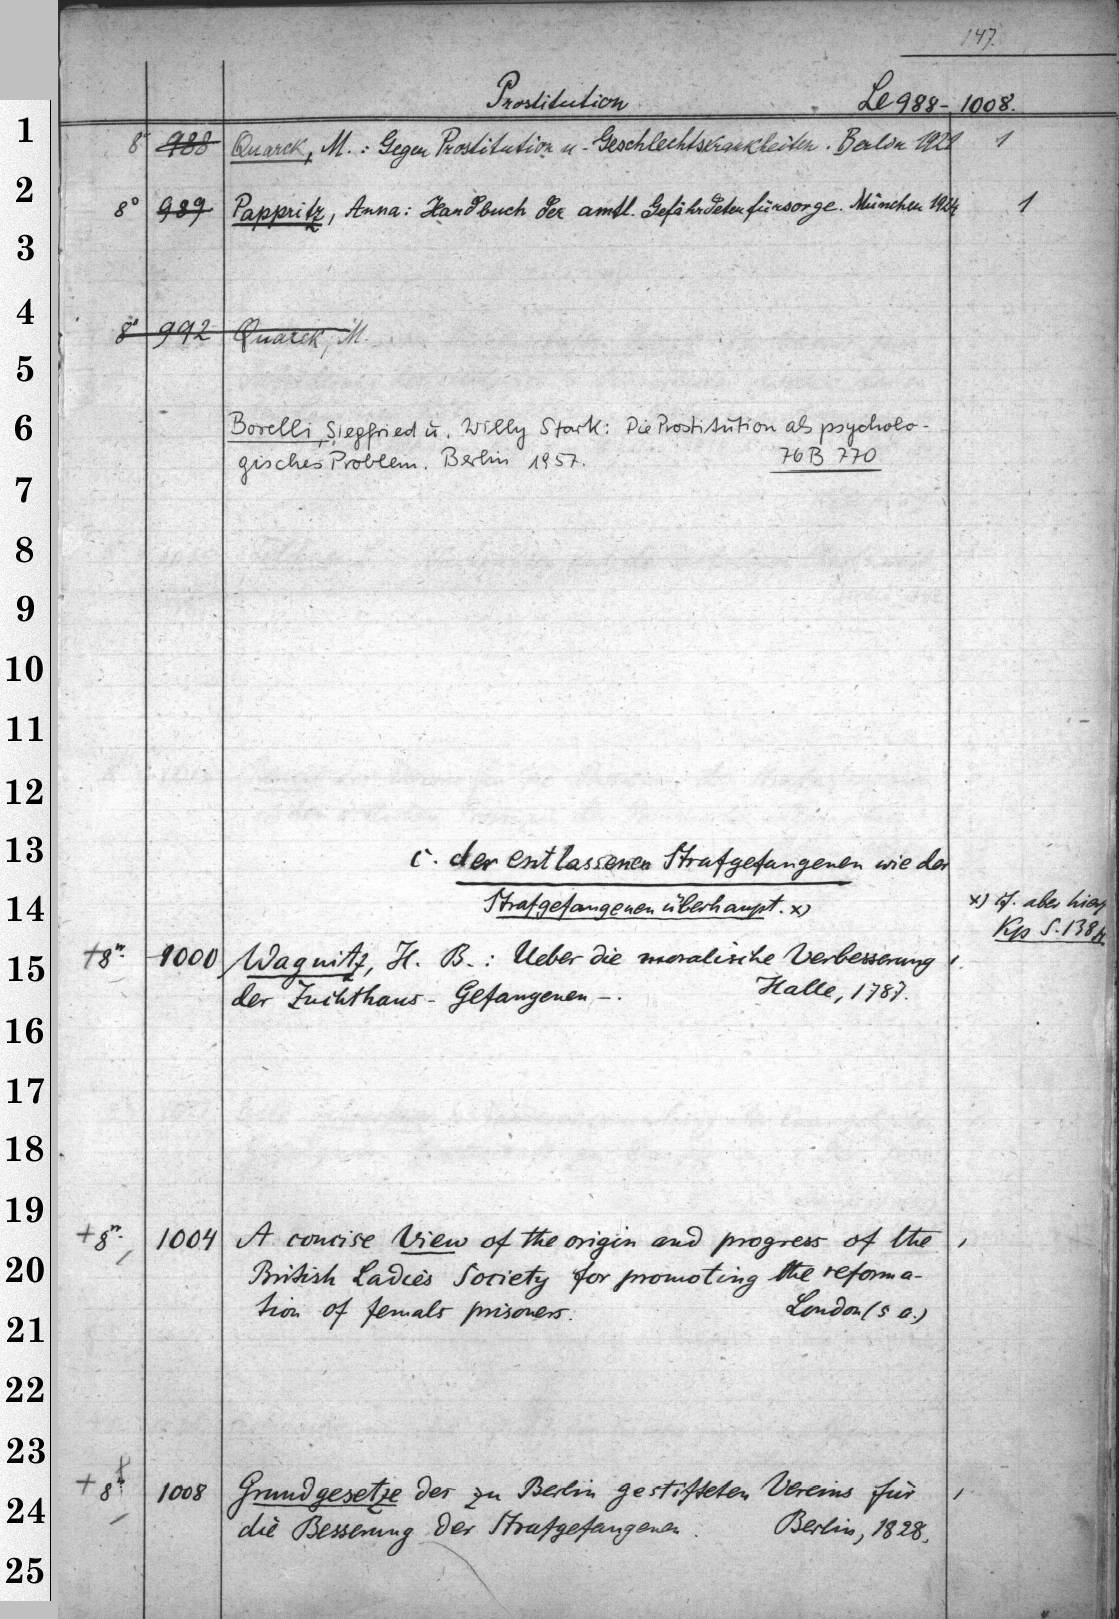 147.
Prostitution Le 988-1008.
8° 988 Quarck, M.: Gegen Prostitution u. Geschlechtskrankheiten. Berlin 1921 1
8° 989 Pappritz, Anna: Handbuch der amtl. Gefährdetenfürsorge. München 1924 1
8° 992 Quarck, M.
Borelli, Siegfried u. Willy Stark: Die Prostitution als psycholo-
gisches Problem. Berlin 1957. 76 B 770
c. der entlassenen Strafgefangenen wie der
Strafgefangenen überhaupt. x)
x) cf. aber hierz
Kp S. 138
+8° 1000 Wagnitz, H. B.: Ueber die moralische Verbesserung 1.
der Zuchthaus-Gefangenen -. Halle, 1787.
+8° 1004 A concise View of the origin and progress of the
British Ladies Society for promoting the reforma-
tion of female prisoners. London (s a.)
+8° 1008 Grundgesetze des zu Berlin gestifteten Vereins für
die Besserung der Strafgefangenen. Berlin, 1828.
1
2
3
4
5
6
7
8
9
10
11
12
13
14
15
16
17
18
19
20
21
22
23
24
25